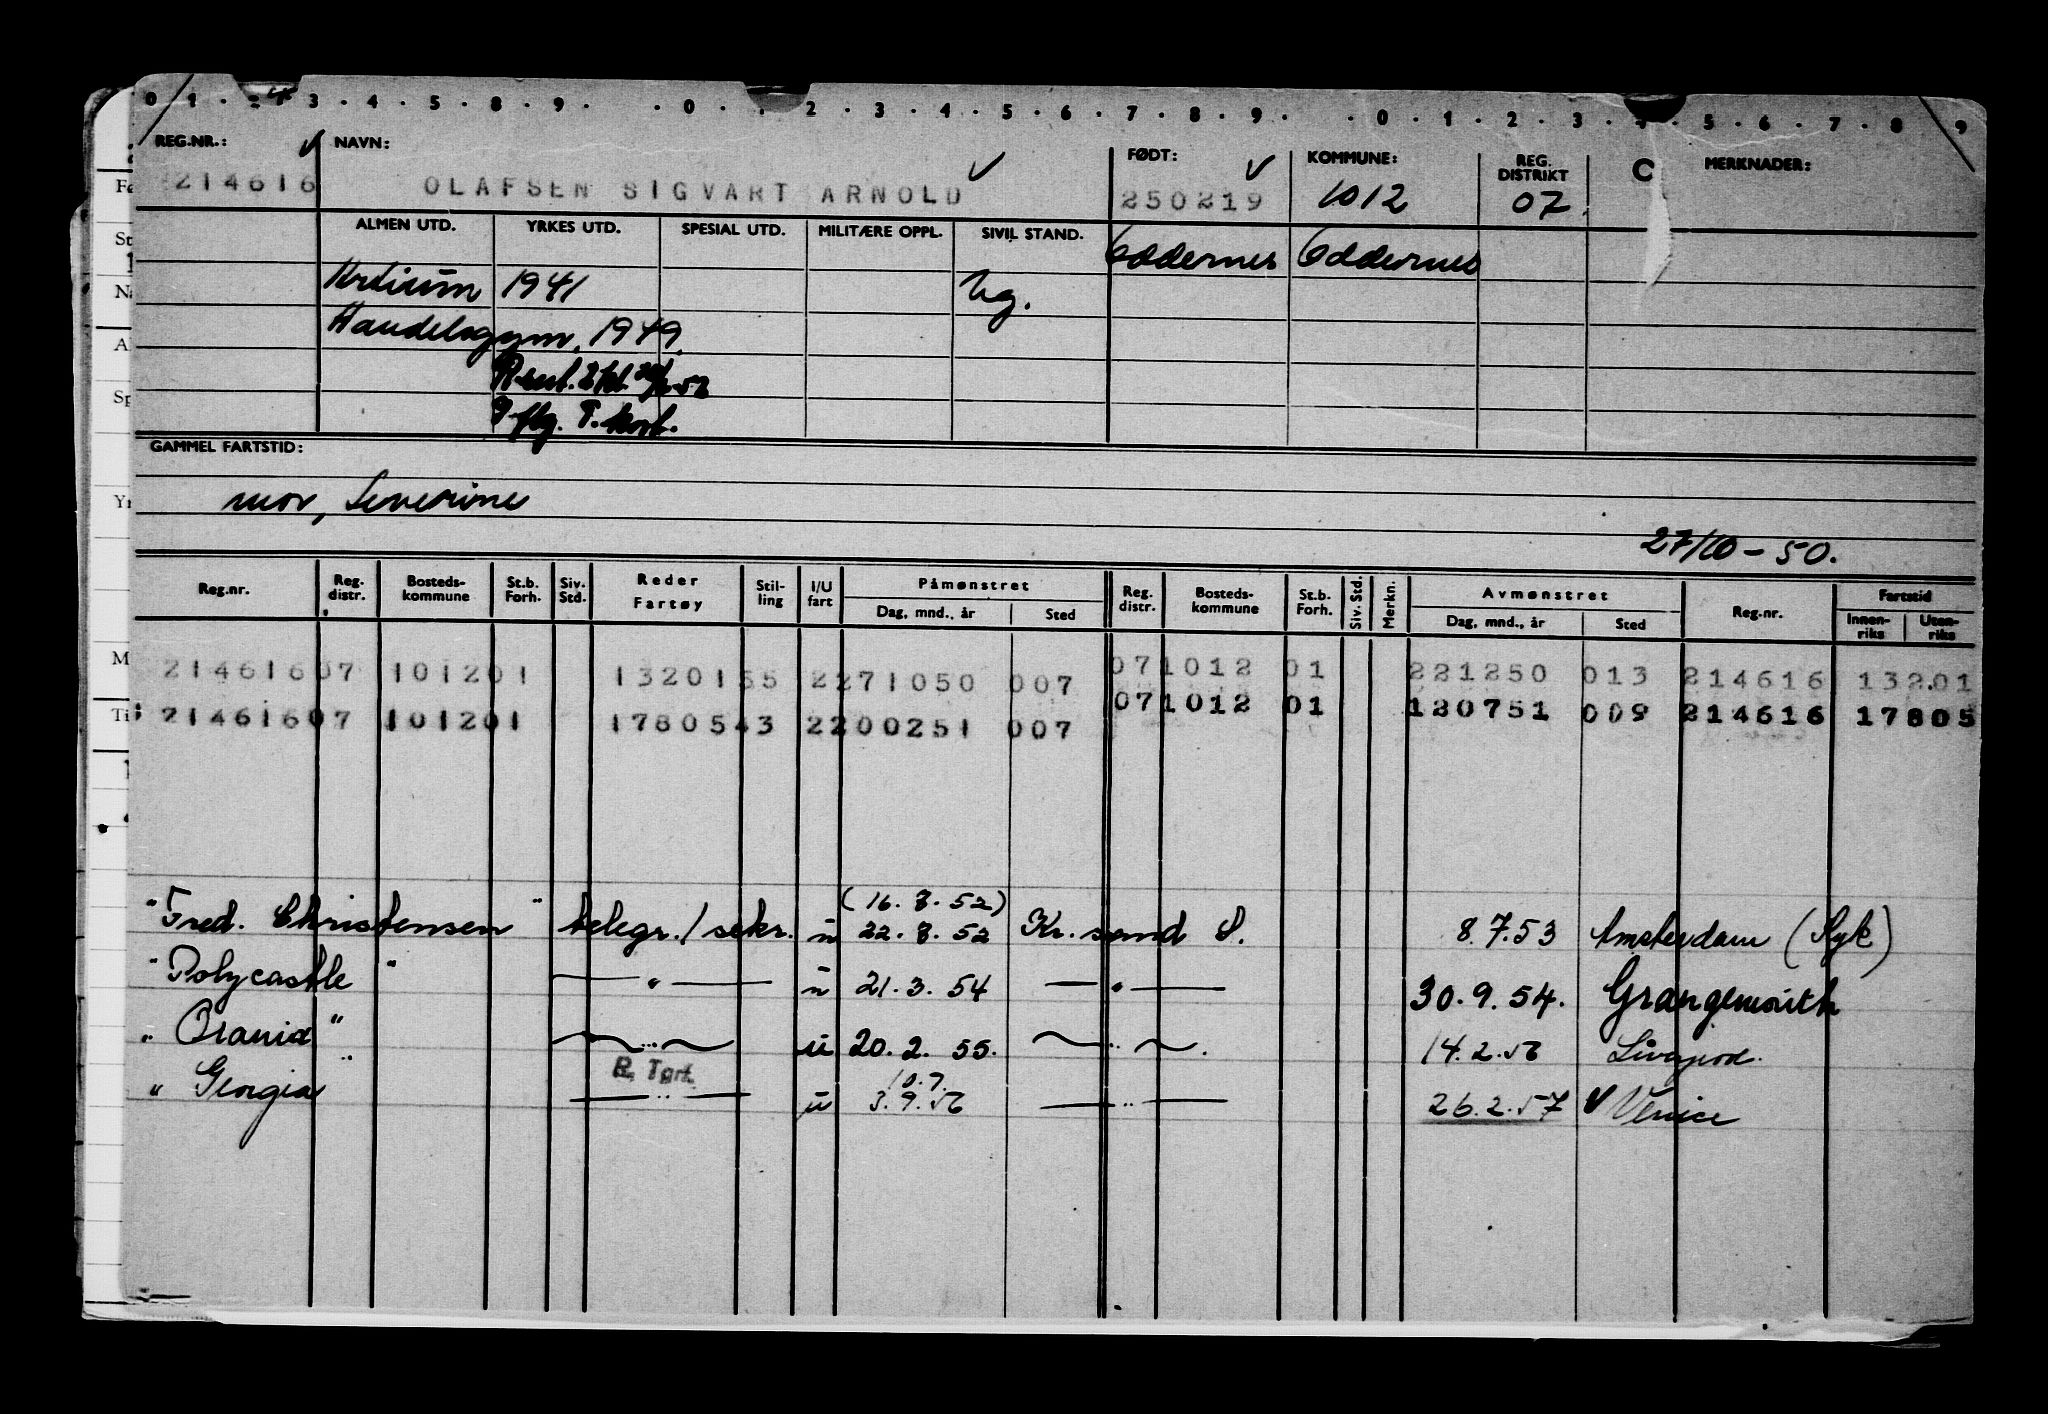 0 1 . 2 3 . 4 . 5 . 8 . 9 . . 0 . . 2 . 3 . 4 . 5 . 6 . 7 . 8 . 9 . . 0 . 1 . 2 . 3 . 5 . 6 . 7 . 8 . 9
REG.NR.: NAVN: FØDT: KOMMUNE: REG. DISTRIKT C MERKNADER:
214616 OLAFSEN SIGVART ARNOLD 250219 1012 07
ALMEN UTD. YRKES UTD. SPESIAL UTD. MILITÆRE OPPL. SIVIL STAND. Oddernes Oddernes
1941 Ug.
Handelsgym. 1949
T.
GAMMEL FARTSTID:
mor, Severine
27/10-50.
Reg.nr. Reg. distr. Bosteds-kommune St.b. Forh. Siv. Std. Reder Fartøy Stil-ling I/U fart Påmønstret Dag, mnd., år Sted Reg. distr. Bosteds-kommune St.b. Forh. Siv. Std. Merkn. Avmønstret Dag, mnd., år Sted Reg.nr. Fartstid Innen-riks Uten-riks
214616 07 1012 01 1320155 2 271050 007 07 1012 01 221250 013 214616 132.01
214616 07 1012 01 1780543 2 200251 007 07 1012 01 120751 009 214616 17805
(16.8.52)
"Fred. Christensen" telegr./sekr. u 22.8.52 Kr.sand S. 8.7.53 Amsterdam (Syk)
"Polycastle" — " — u 21.3.54 — " — 30.9.54. Grangemouth
"Orania" — " — u 20.2.55. — " — . 14.2.56 Liverpool.
R. Tgrf.
10.7.
"Georgia" — " — u 3.9.56 — " — 26.2.57 Venice